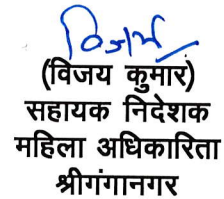 विजय
(विजय कुमार)
सहायक निदेशक
महिला अधिकारिता
श्रीगंगानगर